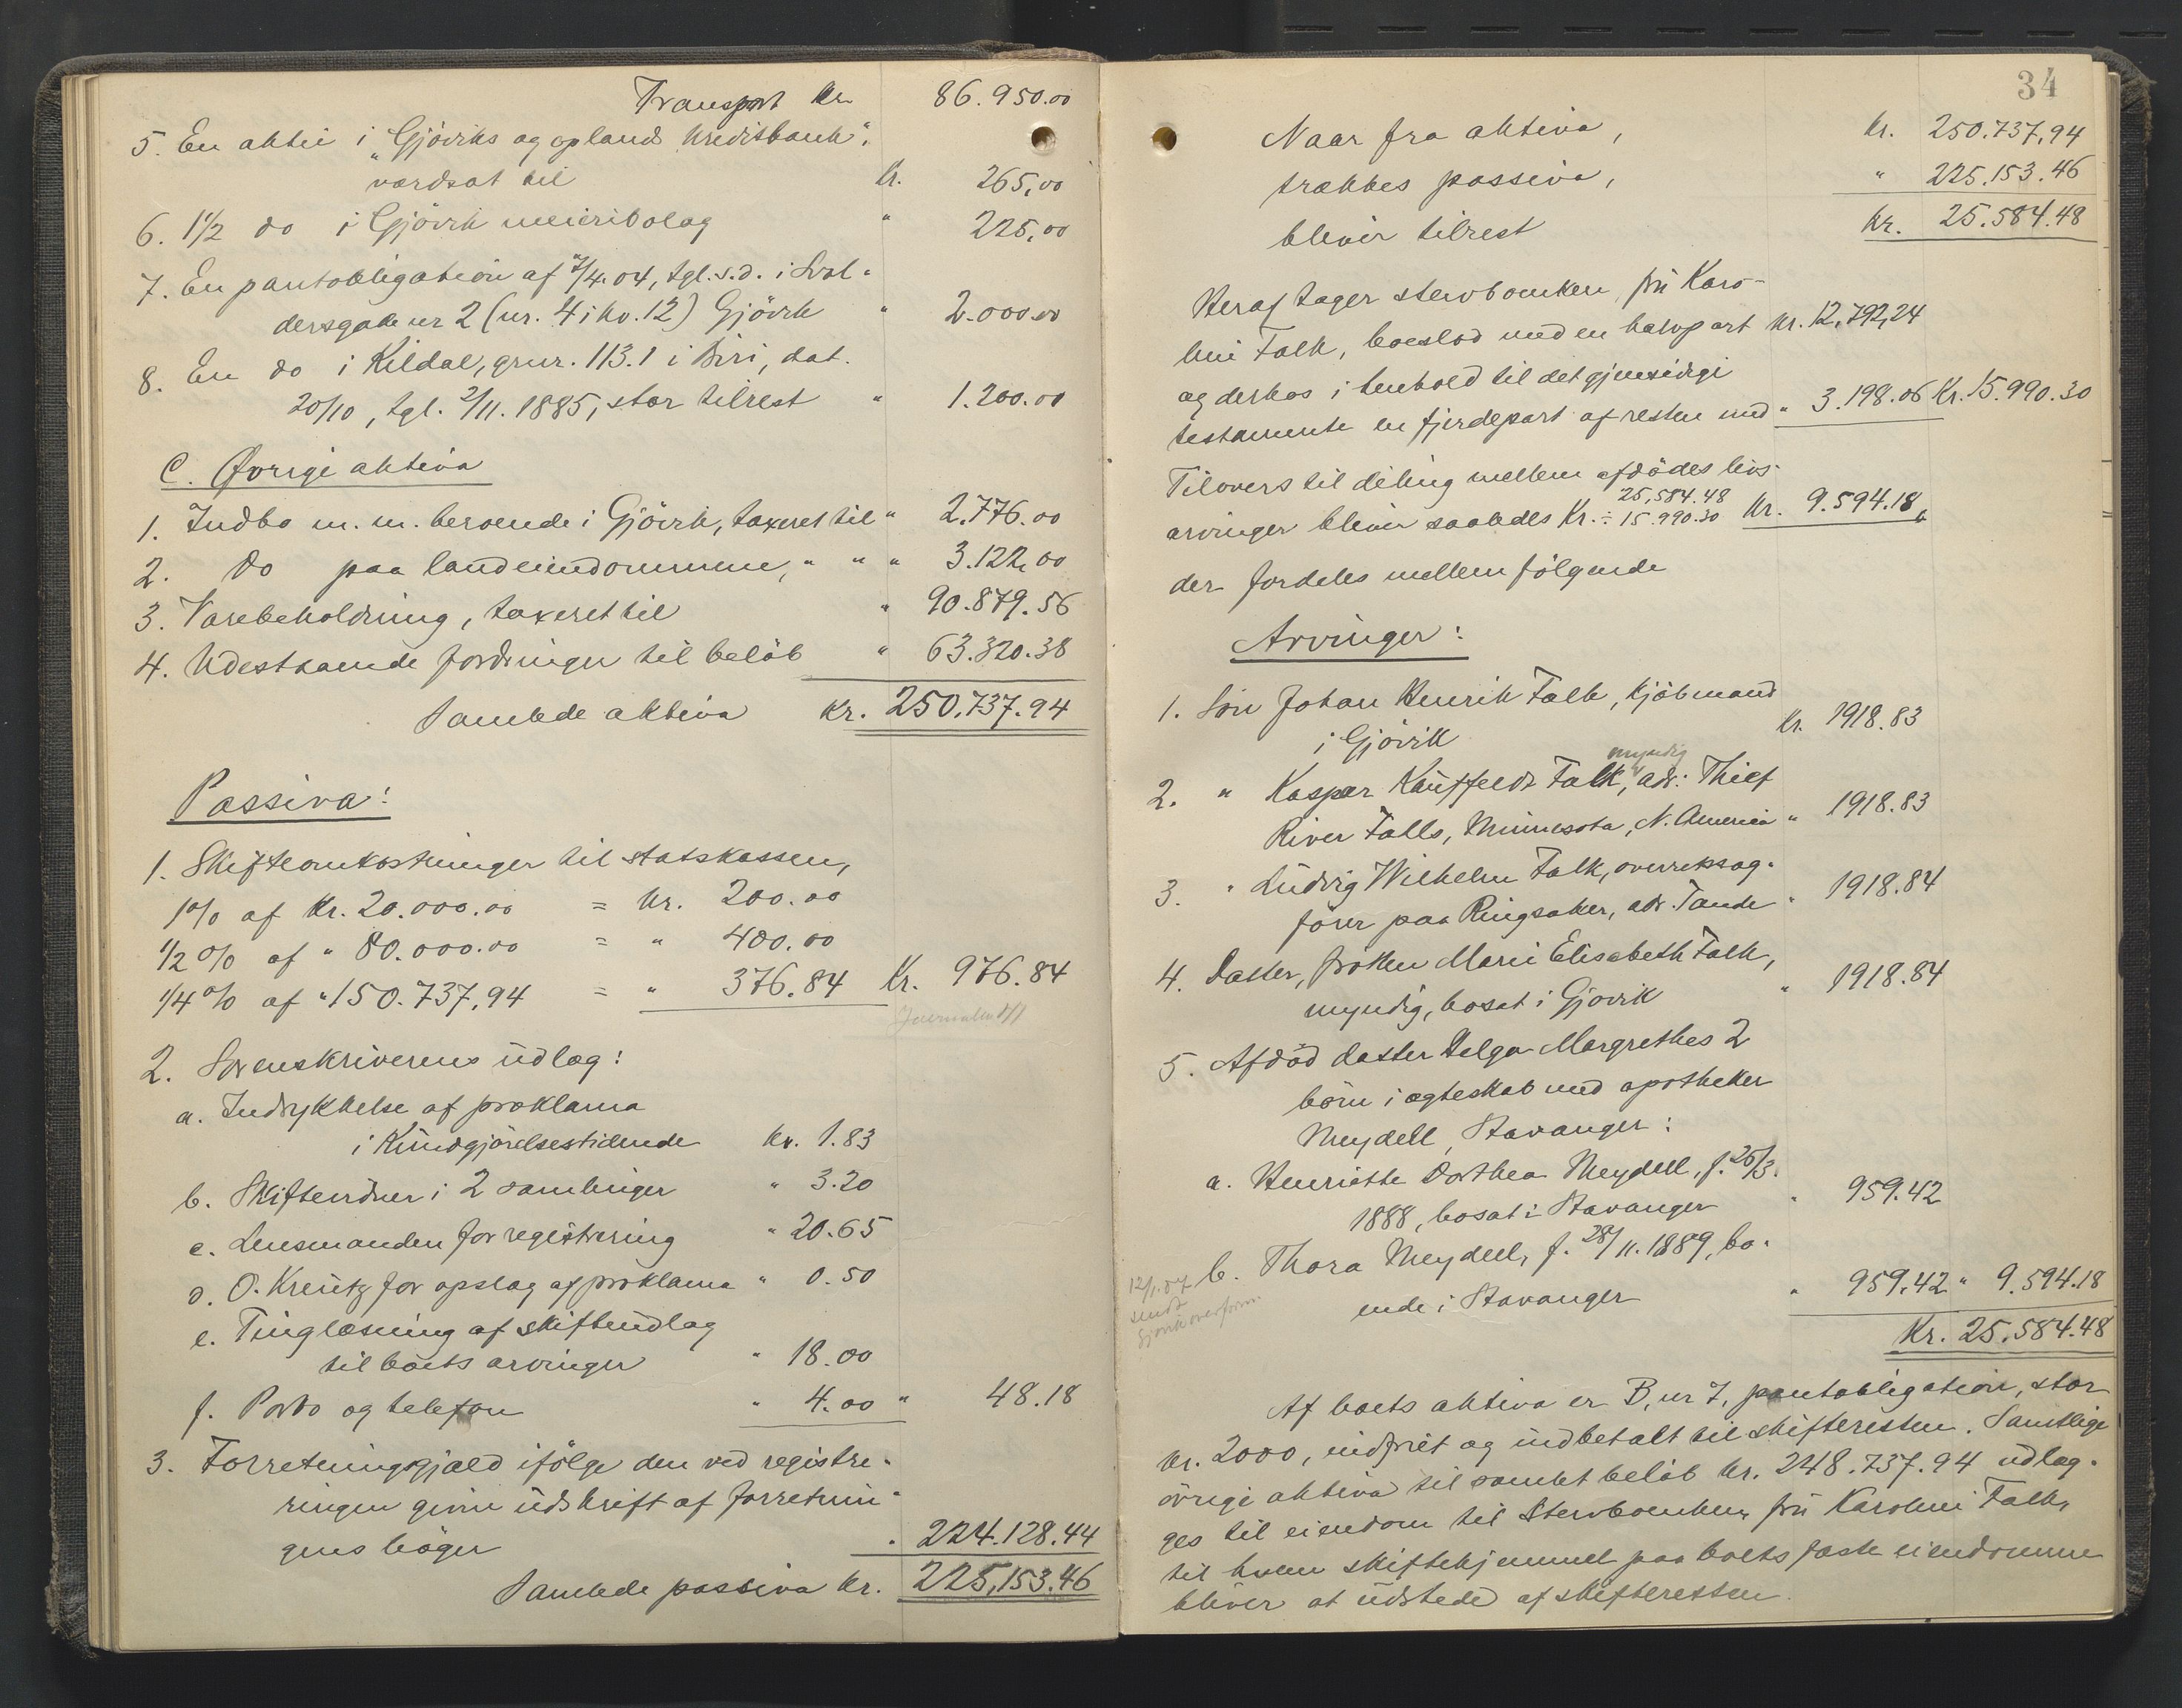 Transport Kr. 86.950.00
5. En aktie i „Gjöviks og oplands kreditbank",
værdsat til Kr. 265,00
6. 1½ do i Gjövik meieribolag " 225,00
7. En pantobligation af 7/4.04, tgl. s.d. i Stol-
dersgade nr 2 (nr. 4 i kv. 12) Gjövik " 2.000.00
8. En do i Kildal, grnr. 113.1 i Biri, dat.
20/10, tgl. 2/11. 1885, stor tilrest " 1.200.00
C. Øvrige aktiva
1. Indbo m. m. beroende i Gjövik, taxeret til " 2.776.00
2. Do paa landeiendommene, " " " 3.122,00
3. Varebeholdning, taxeret til " 90.879.56
4. Udestaaende fordringer til beløb " 63.320.38
Samlede aktiva kr. 250.737.94
Passiva:
1. Skifteomkostninger til statskassen,
1% af Kr. 20.000.00 = kr. 200.00
1/2% af " 80.000.00 = " 400.00
1/4% af " 150.737,94 = " 376.84 Kr. 976.84
2. Sorenskriverens udlæg:
a. Indrykkelse af proklama
i Kundgjörelsestidende kr. 1.83
b. Skiftevidner i 2 samlinger " 3.20
c. Lensmanden for registrering " 20.65
d. O. Kreutz for opslag af proklama " 0.50
e. Tinglæsning af skifteudlæg
til boets arvinger " 18.00
f. Porto og telefon " 4.00 " 48.18
3. Forretningsgjæld ifölge den ved registre-
ringen givne udskrift af forretnin-
gens böger " 224.128.44
Samlede passiva kr. 225,153.46
34
Naar fra aktiva, kr. 250.737,94
trækkes passiva, " 225.153.46
bliver tilrest kr. 25.584.48
Heraf tager stervboenken, fru Karo-
line Falk, boeslod med en halvpart kr. 12,792,24
og derhos i henhold til det gjensidige
testamente en fjerdepart af resten med " 3.198.06 Kr. 15.990.30
Tilovers til deling mellem afdödes livs-
25,584.48
arvinger bliver saaledes Kr. ÷ 15.990.30 Kr. 9.594.18,
der fordeles mellem fölgende
Arvinger:
1. Sön Johan Henrik Falk, kjöbmand
i Gjövik Kr. 1918.83
myndig
2. " Kasper Kauffeldt Falk, adr: Thief
River Falls, Minnesota, N. America " 1918.83
3. " Ludvig Wilhelm Falk, overretssag-
förer paa Ringsaker, adr. Tande " 1918.84
4. Datter, fröken Marie Elisabeth Falk,
myndig, bosat i Gjövik " 1918.84
5. Afdöd datter Helga Margrethes 2
börn i ægteskab med apotheker
Meydell, Stavanger:
a. Henriette Dorthea Meydell, f. 26/3.
1888, bosat i Stavanger " 959.42
b. Thora Meydell, f. 28/11. 1889, bo-
ende i Stavanger " 959.42 " 9.594.18
12/1.07
sendt
Gjövik overform.
Kr. 25.584.48
Af boets aktiva er B, nr 7, pantobligation, stor
kr. 2000, indfriet og indbetalt til skifteretten. Samtlige
övrige aktiva til samlet beløb kr. 248.737.94 udlæg-
ges til eiendom til stervboenken, fru Karoline Falk,
til hvem skiftehjemmel paa boets faste eiendomme
bliver at udstede af skifteretten.